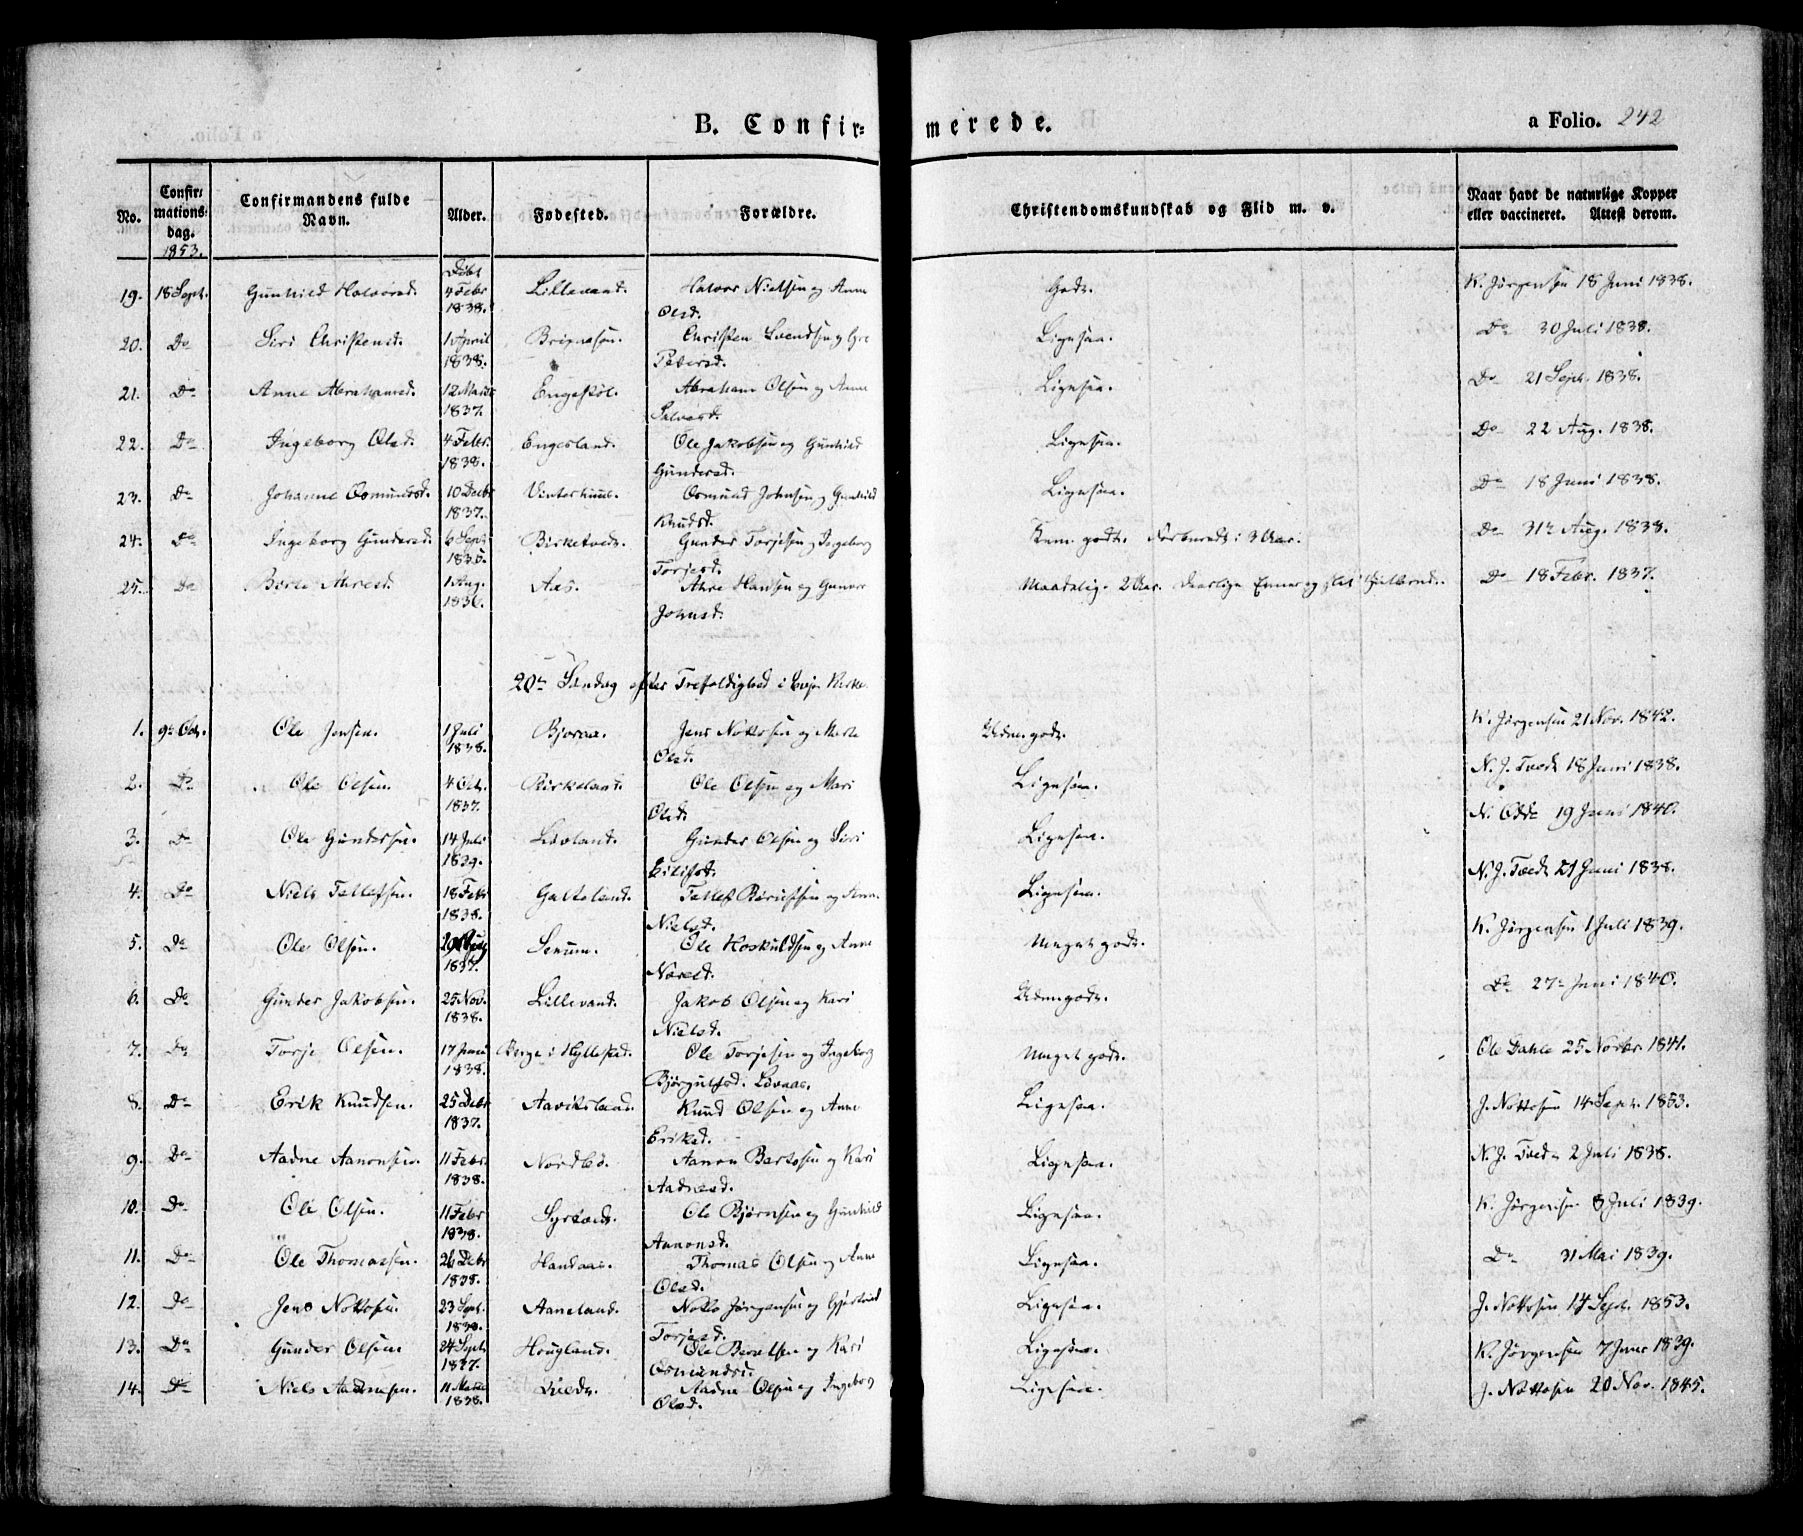 B. Confir= merede. a Folio. 242
No. Confir= mations= dag. 1853. Confirmandens fulde Navn. Alder. Fødested. Forældre. Christendomskundskab og Flid m. v. Naar havt de naturlige Kopper eller vaccineret. Attest derom.
19. 18 Sept. Gunhild Halvorsd. Døbt 4 Febr 1838. Lillevand. Halvor Nielsen og Anne Olsd. Godt. K. Jørgensen 18 Juni 1838.
20. Do Siri Christensd. 1 April 1838. Christen Svendsen og Gro Pedersd. Ligesaa. Do 30 Juli 1838.
21. Do Anne Abrahamsd. 12 Marts 1837. Engeskøl. Abraham Olsen og Anne Salvesd. Ligesaa. Do 21 Sept. 1838.
22. Do Ingeborg Olsd. 4 Febr. 1838. Engesland. Ole Jakobsen og Gunhild Gundersd. Ligesaa. Do 22 Aug. 1838.
23. Do Johanne Osmundsd. 10 Decbr 1837. Vinterhuus. Osmund Johnsen og Gunhild Knudsd. Ligesaa. Do 18 Juni 1838.
24. Do Ingeborg Gundersd. 6 Sept 1835. Birketvedt. Gunder Torjesen og Ingeborg Torjesd. godt. i 3 Aar. Do 31te Aug. 1838.
25. Do Berte Ahresd. 1 Aug. 1836. Aas. Ahre Hansen og Gunvor Johnsd. Maadelig. 2 Aar. Do 18 Febr. 1837.
20de Søndag efter Trefoldighed i Evje Kirke.
1. 9de Oct. Ole Jensen. 1 Juli 1838. Jens Nottosen og Marte Olsd. Udm. godt. K. Jørgensen 21 Nov. 1842.
2. Do Ole Olsen. 4 Oct. 1837. Birkeland. Ole Olsen og Mari Olsd. Ligesaa. N. J. Tvedt 18 Juni 1838.
3. Do Ole Gundersen. 14 Juli 1839. Løvland. Gunder Olsen og Siri Ligesaa. N. Odde 19 Juni 1840.
4. Do Niels Tellefsen. 18 Febr 1838. Galteland. Tellef Berntsen og Anne Nielsd. Ligesaa. N. J. Tvedt 21 Juni 1838.
5. Do Ole Olsen. 1837. Senum. Ole Hoskuldsen og Anne Meget godt. K. Jørgensen 1 Juli 1839.
6. Do Gunder Jakobsen. 25 Nov. 1838. Lillevand. Jakob Olsen og Kari Nielsd. Udm. godt. Do 27de Juni 1840.
7. Do Torje Olsen. 17 Juni 1838. Berge i Hyllestad. Ole Torjesen og Ingeborg Bjørgulfsd. Løvaas. Meget godt. Ole Dahle 25 Novbr. 1841.
8. Do Erik Knudsen. 25 Decbr 1837. Aavitsland. Knud Olsen og Anne Eriksd. Ligesaa. J. Nottosen 14 Sept. 1853.
9. Do Aadne Aanonsen. 11 Febr. 1838. Nordbø. Aanon Bertosen og Kari Aadnesd. Ligesaa. N. J. Tvedt 2 Juli 1838.
10. Do Ole Olsen. 11 Febr 1838. Syrtveit. Ole Bjørnsen og Gunhild Aanonsd. Ligesaa. K. Jørgensen 8 Juli 1839.
11. Do Ole Thomassen. 26 Decbr 1838. Handaas. Thomas Olsen og Anne Olsd. Ligesaa. Do 31 Mai 1839.
12. Do Jens Nottosen. 23 Sept. 1838. Aaneland. Notto Jørgensen og Torjesd. Ligesaa. J. Nottosen 14 Sept. 1853.
13. Do Gunder Olsen. 24 Sept. 1837. Hougland. Ole Berntsen og Kari Osmundsd. Ligesaa. K. Jørgensen 7 Juni 1839.
14. Do Niels Aadnesen. 11 Marts 1838. Aadne Olsen og Ingeborg Olsd. Ligesaa. J. Nottosen 20 Nov. 1845.